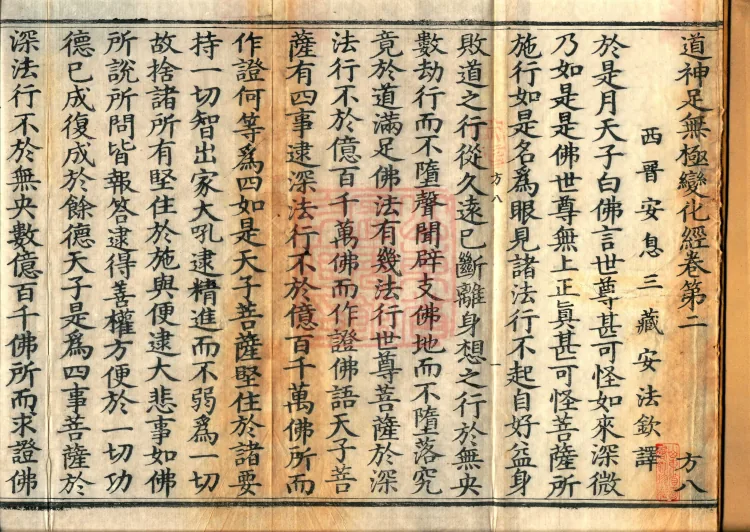 道神足無極變化經卷第二 方八
西晉安息三藏安法欽譯
於是月天子白佛言世尊甚可怪如來深微
乃如是是佛世尊無上正眞甚可怪菩薩所
施行如是名爲眼見諸法行不起自好益身
方八 一
敗道之行從久遠已斷離身想之行於無央
數劫行而不墮聲聞辟支佛地而不墮落究
竟於道滿足佛法有幾法行世尊菩薩於深
法行不於億百千萬佛而作證佛語天子菩
薩有四事逮深法行不於億百千萬佛所而
作證何等爲四如是天子菩薩堅住於諸要
持一切智出家大吼逮精進而不弱爲一切
故捨諸所有堅住於施與便逮大悲事如佛
所說所問皆報答逮得善權方便於一切功
德已成復成於餘德天子是爲四事菩薩於
深法行不於無央數億百千佛所而求證佛